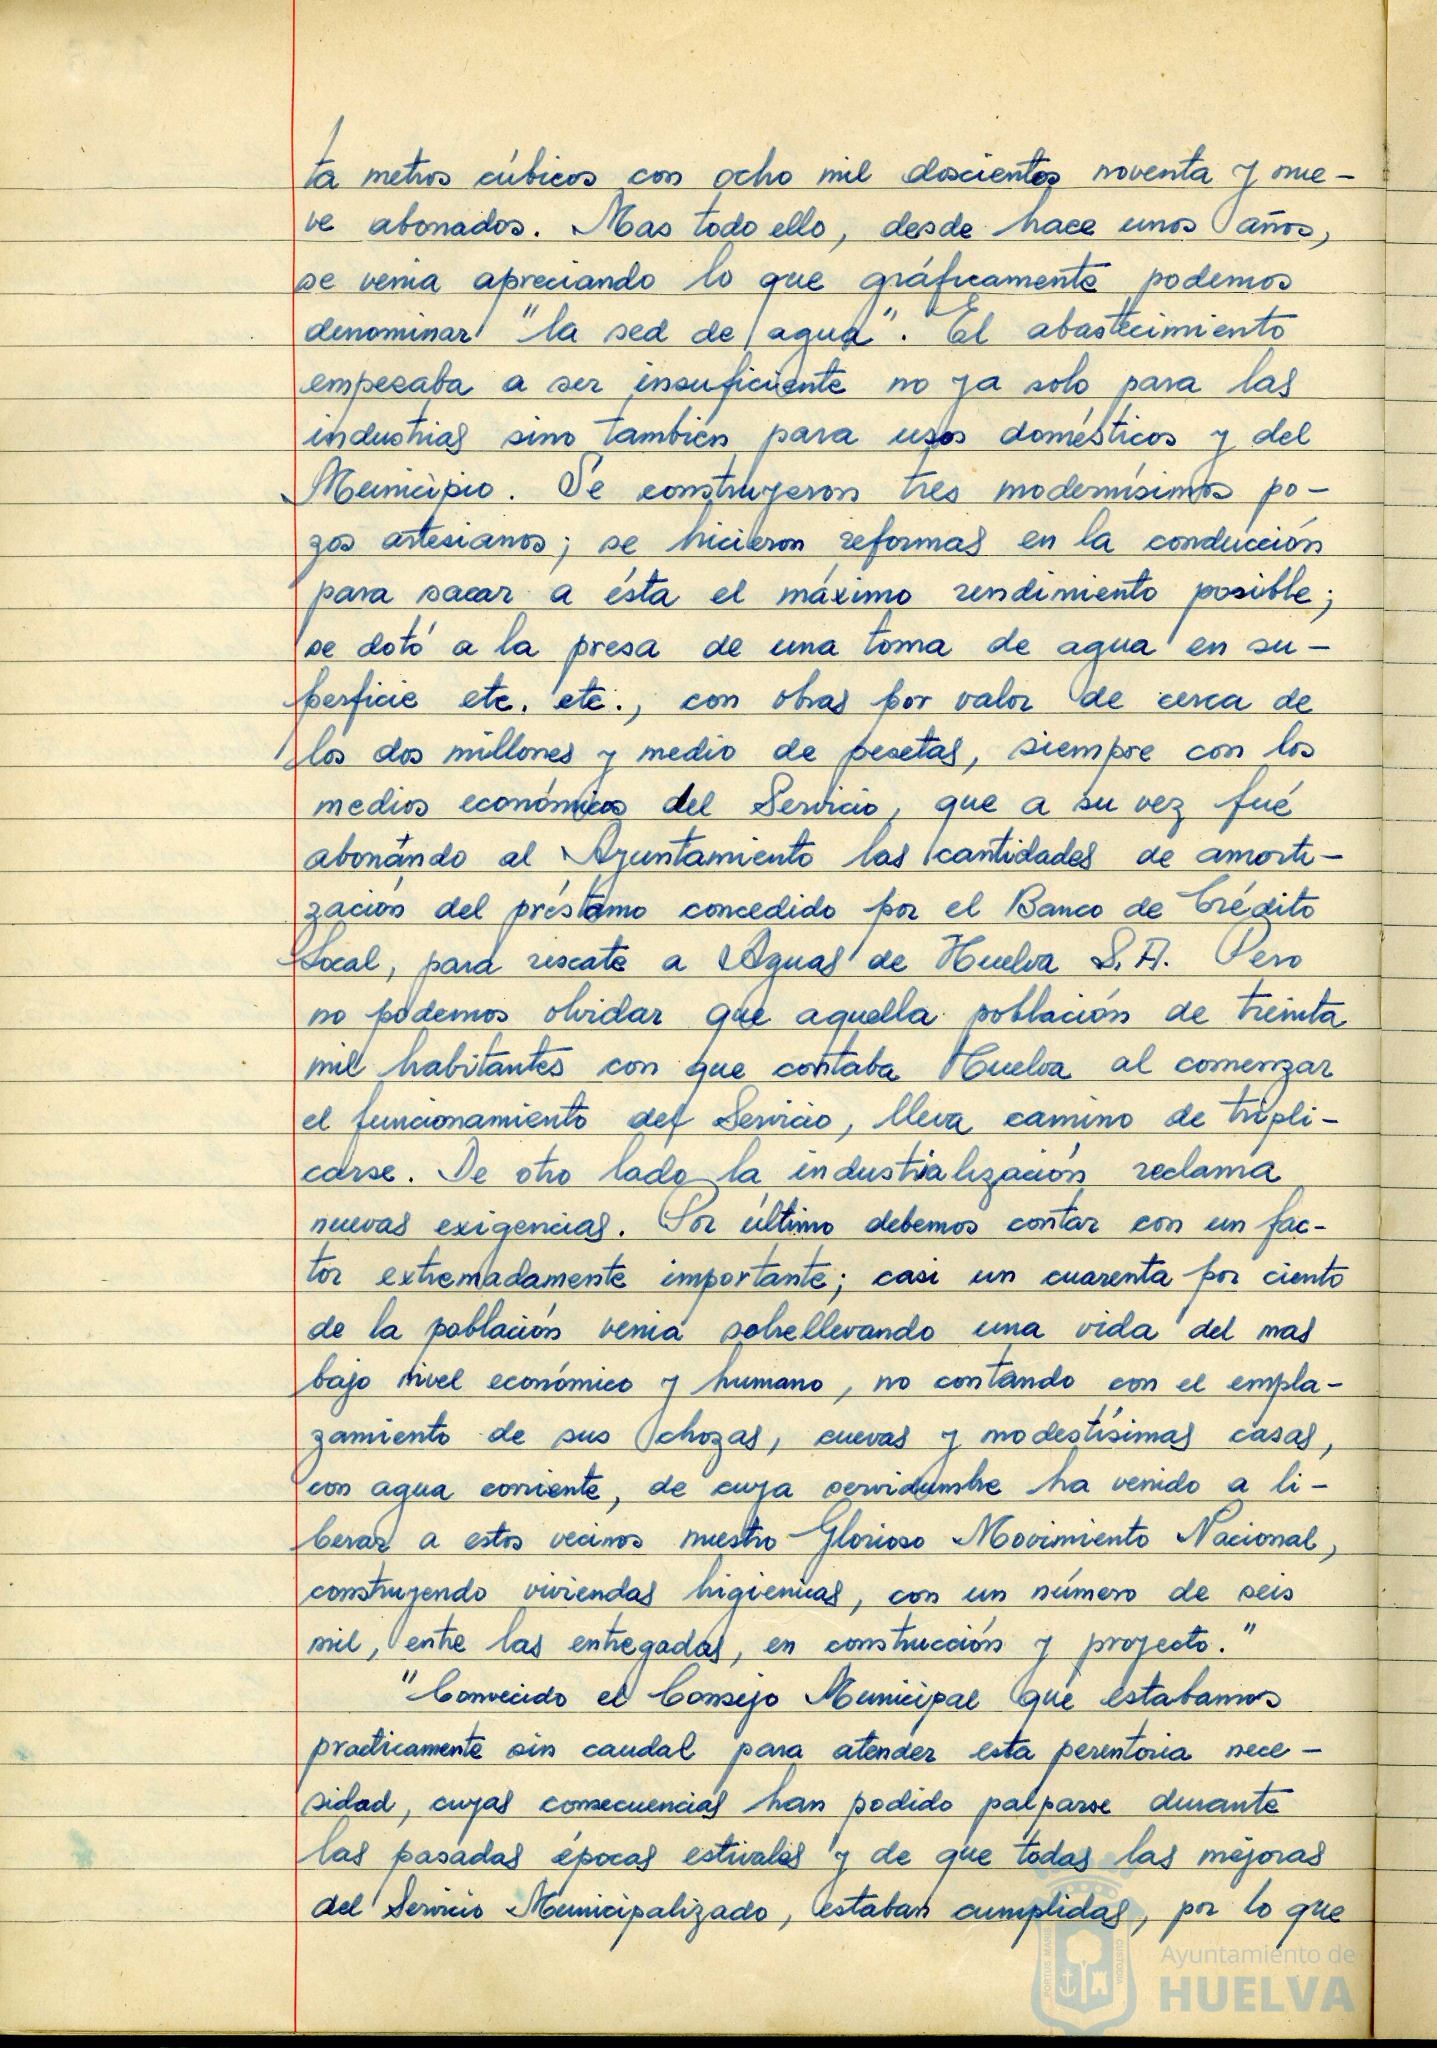 ta metros cúbicos con ocho mil doscientos noventa y nue-
ve abonados. Mas todo ello, desde hace unos años,
se venia apreciando lo que gráficamente podemos
denominar "la sed de agua". El abastecimiento
empezaba a ser insuficiente no ya solo para las
industrias sino también para usos domésticos y del
Municipio. Se construyeron tres modernísimos po-
zos artesianos; se hicieron reformas en la conducción
para sacar a ésta el máximo rendimiento posible;
se dotó a la presa de una toma de agua en su-
perficie etc. etc., con obras por valor de cerca de
los dos millones y medio de pesetas, siempre con los
medios económicos del Servicio, que a su vez fué
abonándo al Ayuntamiento las cantidades de amorti-
zación del préstamo concedido por el Banco de Crédito
Local, para rescate a Aguas de Huelva S.A. Pero
no podemos olvidar que aquella población de treinta
mil habitantes con que contaba Huelva al comenzar
el funcionamiento del Servicio, lleva camino de tripli-
carse. De otro lado la industrialización reclama
nuevas exigencias. Por último debemos contar con un fac-
tor extremadamente importante; casi un cuarenta por ciento
de la población venia sobrellevando una vida del mas
bajo nivel económico y humano, no contando con el empla-
zamiento de sus chozas, cuevas y modestísimas casas,
con agua corriente, de cuya servidumbre ha venido a li-
berar a estos vecinos nuestro Glorioso Movimiento Nacional,
construyendo viviendas higienicas, con un número de seis
mil, entre las entregadas, en construcción y proyecto."
"Convecido el Consejo Municipal que estabamos
practicamente sin caudal para atender esta perentoria nece-
sidad, cuyas consecuencias han podido palparse durante
las pasadas épocas estivales y de que todas las mejoras
del Servicio Municipalizado, estaban cumplidas, por lo que
PORTUS MARIS
CUSTODIA
Ayuntamiento de
HUELVA